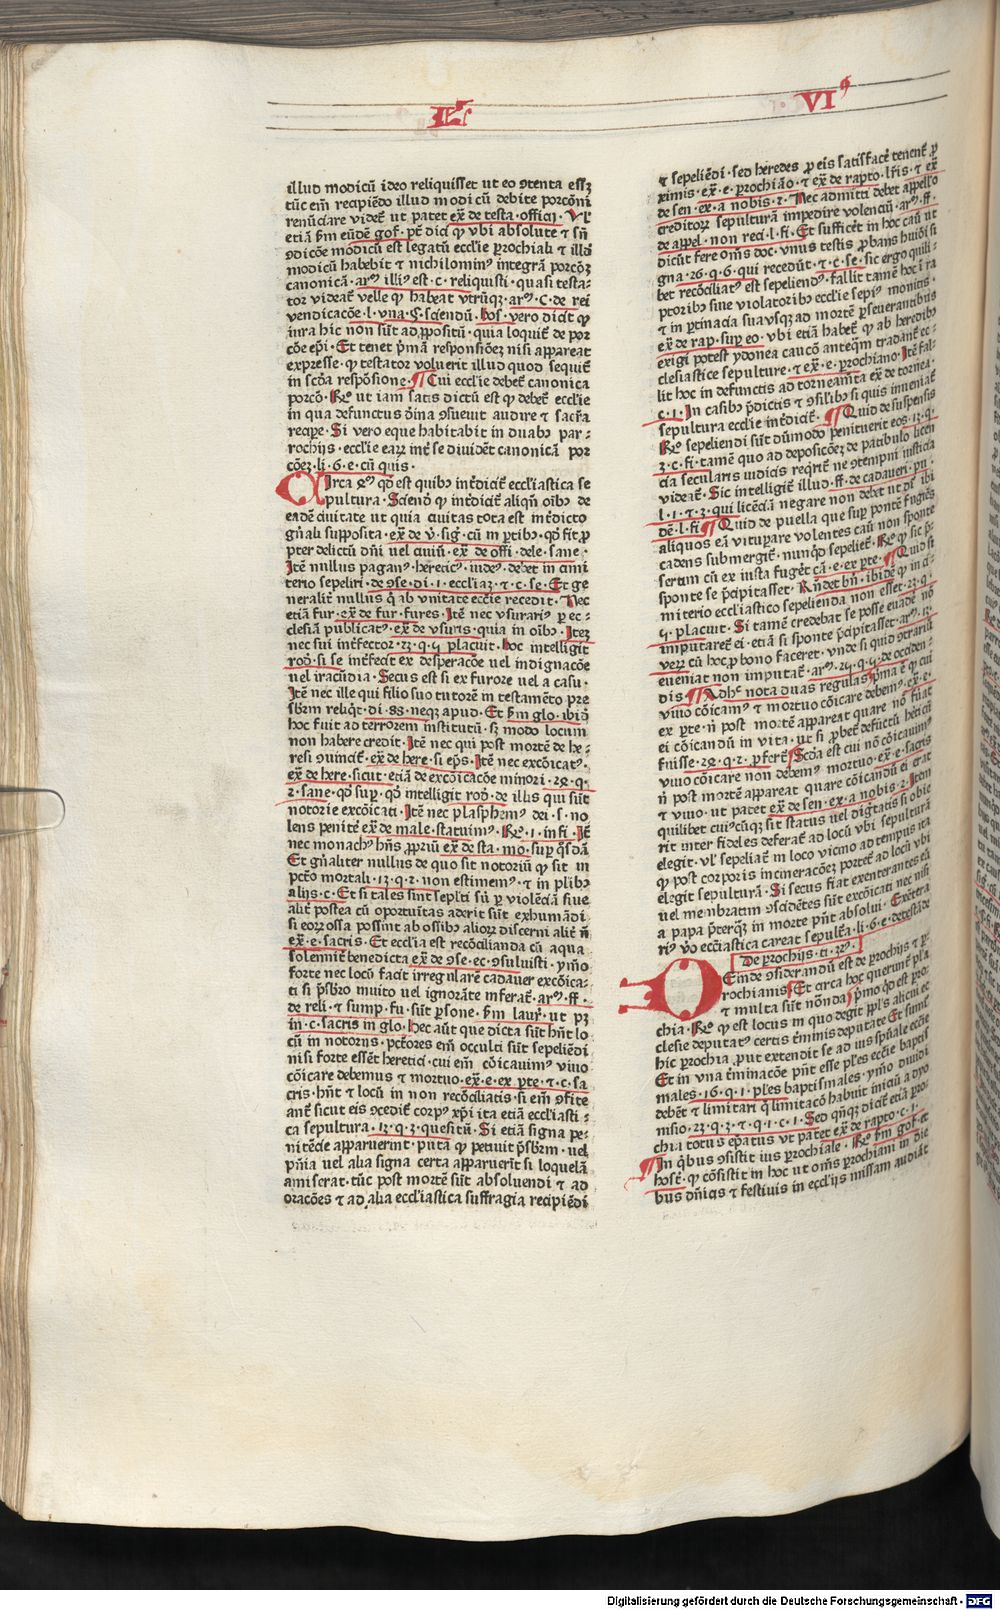 L'
VIꝰ
illud modicū ideo reliquisset ut eo ꝯtenta essꝫ
tūc em̄ recipiēdo illud modicū debite porcōni
renūciare videt᷑ ut patet ex̄ de testa · officij · Vl'
etiā ẜm eūdē gof · pt̄ dici ꝙ vbi absolute ⁊ sn̄
ꝯdicōe modicū est legatū eccl'ie ꝑrochiali ⁊ illō
modicū habebit ⁊ nichilominꝰ integrā porcōꝫ
canonicā · arꝰ illiꝰ est · c · reliquisti · quasi testa⸗
tor videat᷑ velle ꝙ habeat vtrūqꝫ · arꝰ · C · de rei
vendicacōe · l · vna · ¶ · sciendū · hos · vero dicit ꝙ
iura hic non sūt ad ꝓpositū · quia loquit᷑ de por
cōe ep̄i · Et tenet p̄mā responsiōeꝫ nisi appareat
expresse · ꝙ testator voluerit illud quod sequit᷑
in scd̄a respōsione · ¶ Cui eccl'ie debet᷑ canonica
porcō · Rꝰ ut iam satis dictū est ꝙ debet᷑ eccl'ie
in qua defunctus d̄ina ꝯsueuit audire ⁊ sacr̄a
reciꝑe · Si vero eque habitabit in duabꝰ par⸗
rochijs · eccl'ie earꝝ int᷑ se diuidēt canonicā por
cōeꝫ · li · 6 · e · cū quis ·
Circa 4ꝰ qd̄ est quibꝰ int᷑dicit᷑ eccl'iastica se
pultura · Sciend̄ ꝙ int᷑dicit᷑ aliqn̄ oībꝰ de
eadē ciuitate ut quia ciuitas tota est int᷑dicto
gn̄ali supposita · ex̄ de v̄ · sig᷑ · cū in ꝑtibꝰ · qd̄ fit ꝓ
pter delictū dn̄i uel ciuiū · ex̄ de offi · dele · sane ·
Itē nullus paganꝰ · hereticꝰ · iudeꝰ · debet in cimi
terio sepeliri · de ꝯse · di · 1 · eccl'iaꝫ · ⁊ · c · se · Et ge
neralit᷑ nullus q̄ ab vnitate eccl'ie recedit · Nec
etiā fur · ex̄ de fur · fures · Itē nec vsurariꝰ ꝑ ec⸗
clesiā publicatꝰ · ex̄ de vsuris · quia in oībꝰ · Iteꝫ
nec sui int᷑fector · 23 · q · 5 placuit · hoc intelligit
rod̄ · si se int᷑fecit ex desperacōe uel indignacōe
uel iracūdia · Secus est si ex furore uel a casu ·
Itē nec ille qui filio suo tutorē in testamēto pre
sb̄rm reliq̄t · di · 88 · neqꝫ apud · Et ẜm glo · ibid̄
hoc fuit ad terrorem institutū · sꝫ modo locum
non habere credit · Itē nec qui post mortē de he⸗
resi ꝯuincit᷑ · ex̄ de here · si ep̄s · Itē nec excōicatꝰ ·
ex̄ de here · sicut · etiā de excōicacōe minori · 24 · q ·
2 · sane · qd̄ suꝑ · qd̄ intelligit rod̄ · de illis qui sūt
notorie excōicati · Itē nec plasphemꝰ dei · s · no
lens penitē · ex̄ de male · statuimꝰ · Rꝰ · 1 · in fi · Itē
nec monachꝰ hn̄s ꝓpriū ex̄ de sta · mo · suꝑ qd̄aꝫ
Et gn̄aliter nullus de quo sit notoriū ꝙ sit in
pctō mortali · 13 · q · 2 · non estimemꝰ · ⁊ in plibꝰ
alijs · c · Et si tales sint sepl'ti siū ꝑ violēciā siue
alit᷑ postea cū oportuītas aderit sūt exhumādi ·
si eorꝝ ossa possint ab ossibꝰ aliorꝝ discerni alit᷑ n̄
ex̄ · e · sacris · Et eccl'ia est recōcilianda cū aqua
solennit᷑ benedicta ex̄ de ꝯse · ec · ꝯsuluisti · ymo
forte nec locū facit irregularē cadauer excōica⸗
ti si p̄sbr̄o muito uel ignorāte inferat᷑ · arꝰ · ff ·
de reli · ⁊ sump · fu · sūt ꝑsone · ẜm laur̄ · ut pꝫ
in · c · sacris in glo · Hec aūt que dicta sūt hn̄t lo
cū in notorijs · pct̄ores em̄ occulti sūt sepeliēdi
nisi forte essēt heretici · cui em̄ cōicauimꝰ viuo
cōicare debemus ⁊ mortuo · ex̄ · e · ex ꝑte · ⁊ · c · sa
cris · hn̄t ⁊ locū in non recōciliatis · si em̄ ꝯfite
ant᷑ sicut eis ꝯcedit᷑ corpꝰ xp̄i ita etiā eccl'iasti⸗
ca sepultura · 13 · q · 3 · quesitū · Si etiā signa pe⸗
nitēcie apparuerint · puta ꝙ petiuit p̄sbr̄m · uel
pn̄ia uel alia signa certa apparuerīt si loquelā
amiserat · tūc post mortē sūt absoluendi ⁊ ad
oracōes ⁊ ad alia eccl'iastica suffragia recipiēdi
⁊ sepeliēdi · sed heredes ꝓ eis satisfacē tenent᷑ ꝓ
ximis · ex̄ · e · ꝑrochiāo · ⁊ ex̄ de rapto · lr̄is · ⁊ ex̄
de sen · ex · a nobis · 2 · Nec admitti debet appell'o
creditorꝝ sepulturā impedire volenciū · arꝰ · ff ·
de appel · non reci · l · fi · Et sufficit᷑ in hoc caū ut
dicūt fere om̄s doc · vnus testis ꝓbans huiōi si
gna · 26 · q · 6 · qui recedūt · ⁊ · c · se · sic ergo quili⸗
bet recōciliatꝰ est sepeliendꝰ · fallit tamē hoc ī ra
ptoribꝰ siue violatoribꝰ eccl'ie sepiꝰ monitis ·
⁊ in ꝑtinacia sua vsqꝫ ad mortē ꝑseuerantibus
ex̄ de rap · suꝑ eo · vbi etiā habet᷑ ꝙ ab heredibꝰ
exigi potest ydonea caucō anteqꝫ tradant᷑ ec⸗
clesiastice sepulture · ⁊ ex̄ · e · ꝑrochiano · Itē fal⸗
lit hoc in defunctis ad torneamēta ex̄ de tornea ·
c · 1 · In casibꝰ p̄dictis ⁊ ꝯsilībꝰ si quis inueniat᷑
sepultura eccl'ie int᷑dicit᷑ · ¶ Quid de suspensis
Rꝰ sepeliendi sūt dūmodo penituerit eos · 13 · q ·
2 · c · fi · tamē quo ad deposicōeꝫ de patibulo licen
cia secularis iudicis req̄rit᷑ ne ꝯtempni iusticia
videat᷑ · Sic intelligit᷑ illud · ff · de cadaueri · pu ·
l · 1 · ⁊ · 2 · qui licēciā negare non debet ut dī ibi
dē · l · fi ¶ Quid de puella que suꝑ pontē fugiēs
aliquos eā vituꝑare volentes caū non sponte
cadens submergit᷑ · nunqd̄ sepeliet᷑ · Rꝰ ꝙ sic p̄
sertim cū ex iusta fuget᷑ cā · e · ex ꝑte · ¶ Quid si
sponte se p̄cipitasset · Rn̄det bn̄ · ibidē ꝙ in ci⸗
miterio eccl'iastico sepelienda non esset · 23 · q ·
5 · placuit · Si tamē credebat se posse euadē nō
imputaret᷑ ei · etiā si sponte p̄cipitasset · arꝰ · 13 ·
verꝝ cū hoc ꝓ bono faceret · vnde si quid ꝯtrariū
eueniat non imputat᷑ · arꝰ · 23 · q · 5 · de occiden⸗
dis ¶ Adhꝰ nota duas regulas p̄ma ē ꝙ cui
viuo cōicamꝰ ⁊ mortuo cōicare debemꝰ · ex̄ · e ·
ex ꝑte · n̄ post mortē appareat quare nō fūat
ei cōicandū in vita · ut si ꝓbet᷑ defūctū heticū
fuisse · 24 · q · 2 · ꝓfert᷑ ¶ Scd̄a est cui nō cōicauimꝰ
viuo cōicare non debemꝰ mortuo · ex̄ · e · sacris
n̄ post mortē appareat quare cōicandū ei erat
⁊ viuo · ut patet ex̄ de sen · ex · a nobis · 2 · Item
quilibet cuiꝰcūqꝫ sit status uel diḡtatis si obie
rit inter fideles deferat᷑ ad locū vbi sepulturā
elegit · vl' sepeliat᷑ in loco vicino ad tempus ita
ꝙ post corporis incineracōeꝫ portet᷑ ad locū vbi
elegit sepulturā · Si secus fiat exenterantes eū
uel membratim ꝯscidētes sūt excōicati nec nisi
a papa p̄terqꝫ in morte pn̄t absolui · Exētera
riꝰ v̄o ecc'iastica careat sepult᷑a · li · 6 · e · detestāde
De ꝑrochijs · ti · 29ꝰ ·
Deinde ꝯsiderandū est de ꝑrochijs ⁊ ꝑ⸗
rochianis ¶ Et circa hoc querunt᷑ pl'a
⁊ multa sūt nōnda p̄mo qd̄ est ꝑro⸗
chia · Rꝰ ꝙ est locus in quo degit ppl's alicui ec
clesie deputatꝰ certis t᷑minis deputate Et sumit᷑
hic ꝑrochia ꝓut extendit se ad ius spūale eccl'ie
Et in vna t᷑minacōe pn̄t esse pl'es eccl'ie baptis
males · 16 · q · 1 · pl'es baptismales · ymo diuidi
debēt ⁊ limitari q̄ limitacō habuit iniciū a dyo
nisio · 23 · q · 3 · ⁊ · q · 1 · c · 1 · Sed qn̄qꝫ dicit᷑ etiā ꝑro⸗
chia totus ep̄atus vt patet ex̄ de rapto · c · 1 ·
¶ In q̄bus ꝯsistit ius ꝑrochiale · Rꝰ ẜm gof · et
host᷑ · ꝙ cōsistit in hoc ut om̄s ꝑrochiani in die
bus dn̄icis ⁊ festiuis in eccl'ijs missam audiāt
Digitalisierung gefördert durch die Deutsche Forschungsgemeinschaft - DFG